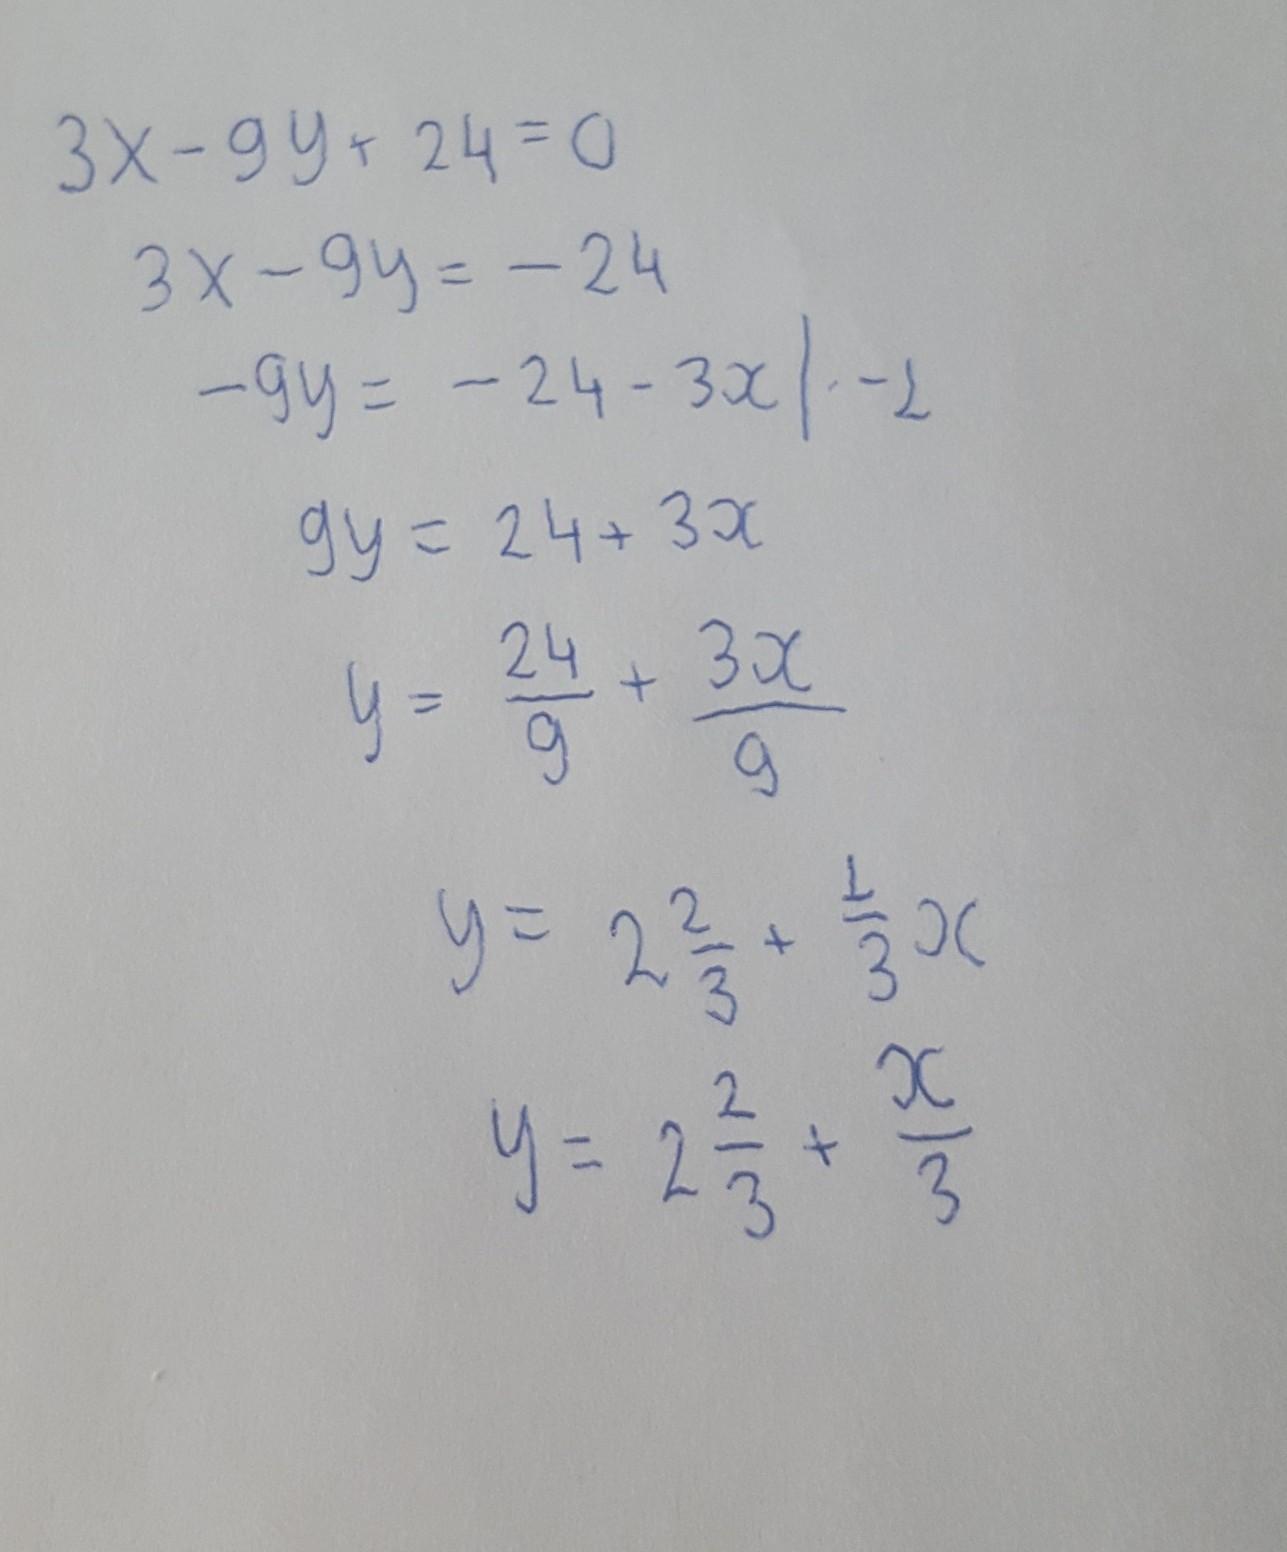 3x - 9y + 24 = 0
3x - 9y = - 24
- 9y = - 24 - 3x | · -1
9y = 24 + 3x
y = 24/9 + 3x/9
y = 2 2/3 + 1/3 x
y = 2 2/3 + x/3